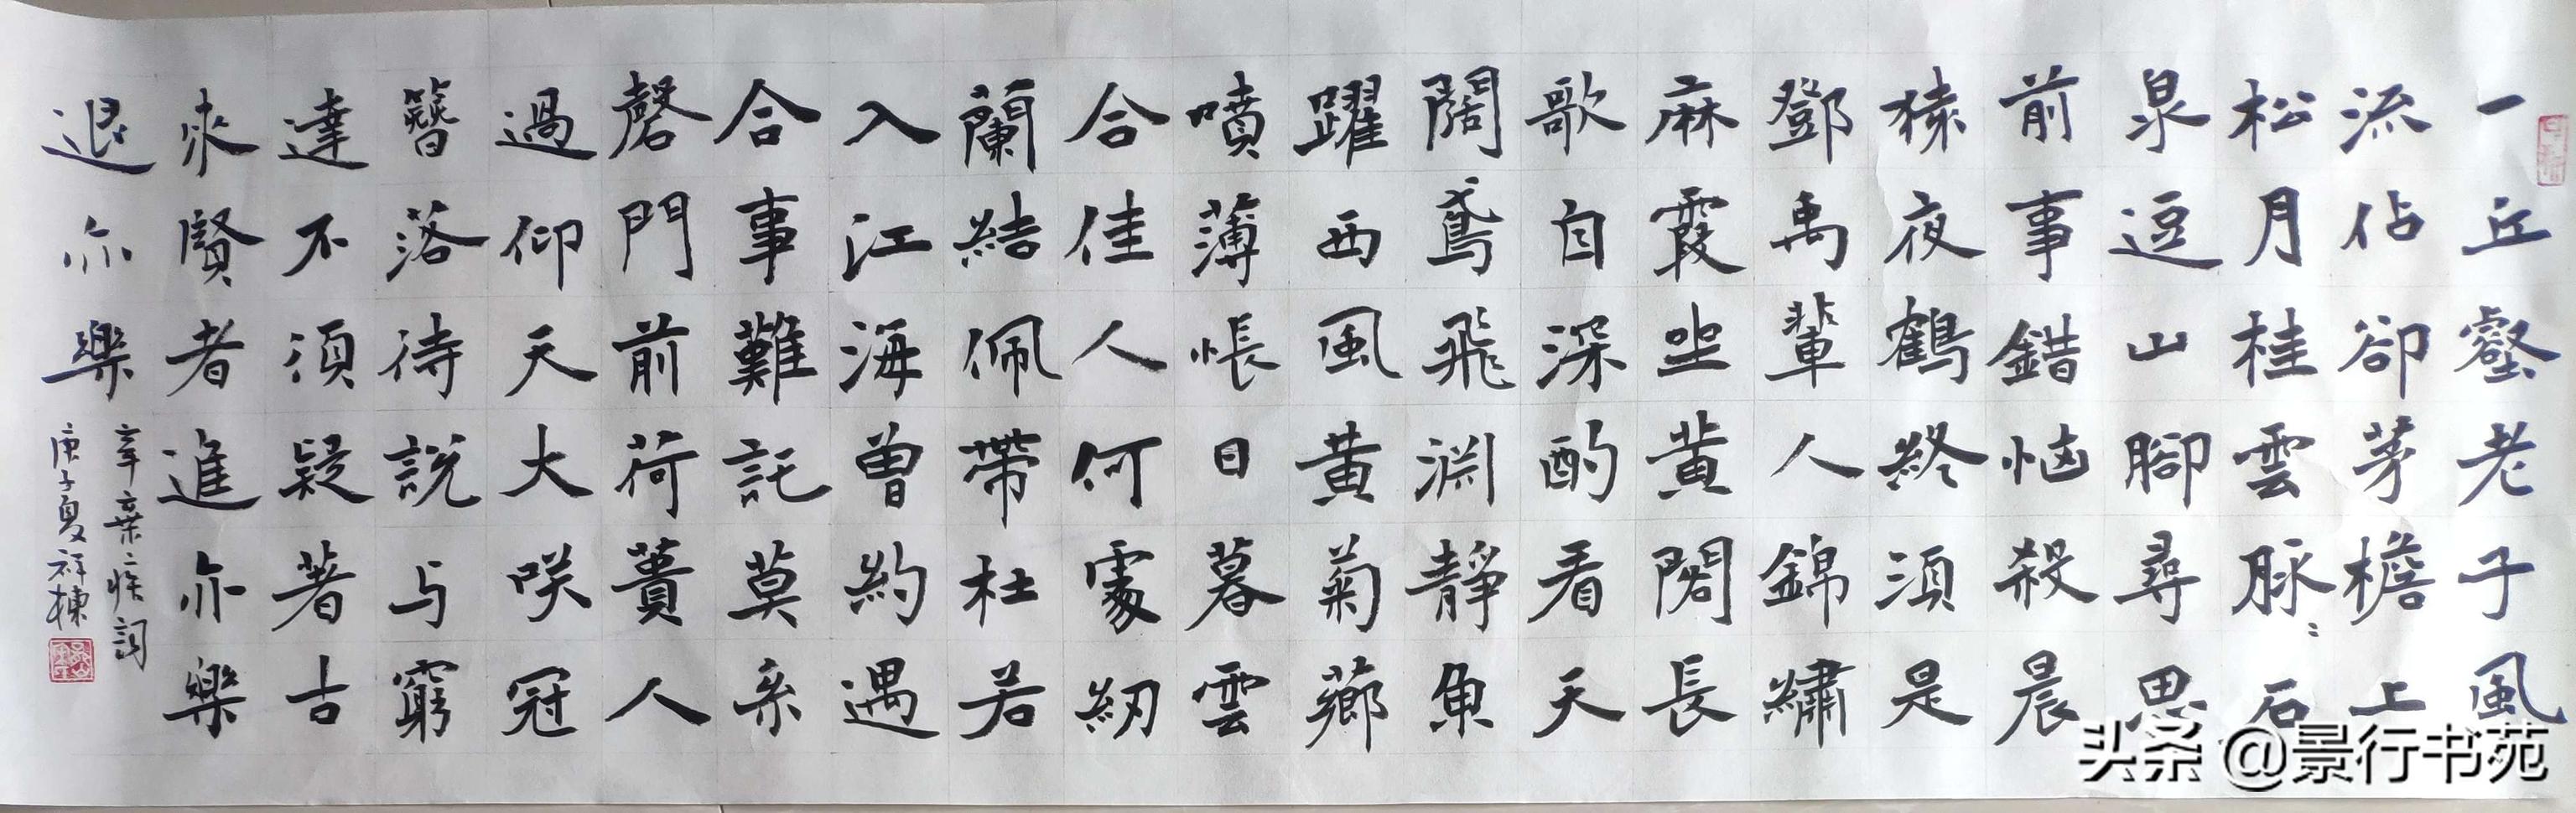 一丘壑老子風
流佔卻茅檐上
松月桂雲脉〻石
泉逗山腳尋思
前事錯惱殺晨
猿夜鶴終須是
鄧禹輩人錦繡
麻霞坐黃閣長
歌自深酌看天
闊鳶飛淵靜魚
躍西風黃菊薌
噴薄悵日暮雲
合佳人何處紉
蘭結佩帶杜若
入江海曾約遇
合事難託莫系
磬門前荷蕢人
過仰天大咲冠
簪落待說与窮
達不須疑著古
來賢者進亦樂
退亦樂
辛棄疾詞
庚子夏祥棟
头条 @景行书苑